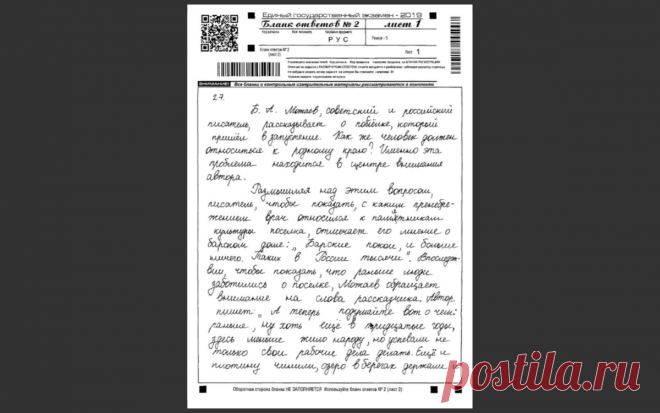 Единый государственный экзамен - 2019
Бланк ответов № 2 лист 1
РУС
Лист 1
Бланк ответов № 2
(лист 2)
ВНИМАНИЕ! Все бланки и контрольные измерительные материалы рассматриваются в комплекте
27.
Б. А. Можаев, советский и российский
писатель, рассказывает о посёлке, который
пришёл в запустение. Как же человек должен
относиться к родному краю? Именно эта
проблема находится в центре внимания
автора.
Размышляя над этим вопросом,
писатель, чтобы показать, с каким пренебре-
жением врач относился к памятникам
культуры поселка, отмечает его мнение о
барском доме: „Барские покои, и больше
ничего. Таких в России тысячи". Впоследст-
вии, чтобы показать, что раньше люди
заботились о поселке, Можаев обращает
внимание на слова рассказчика. Автор
пишет: „А теперь подумайте вот о чем:
раньше, ну хоть ещё в тридцатые годы,
здесь меньше жило народу, но успевали не
только свои рабочие дела делать. Ещё и
плотину чинили, озеро в берегах держали
Оборотная сторона бланка НЕ ЗАПОЛНЯЕТСЯ. Используйте бланк ответов № 2 (лист 2)
myslo.ru